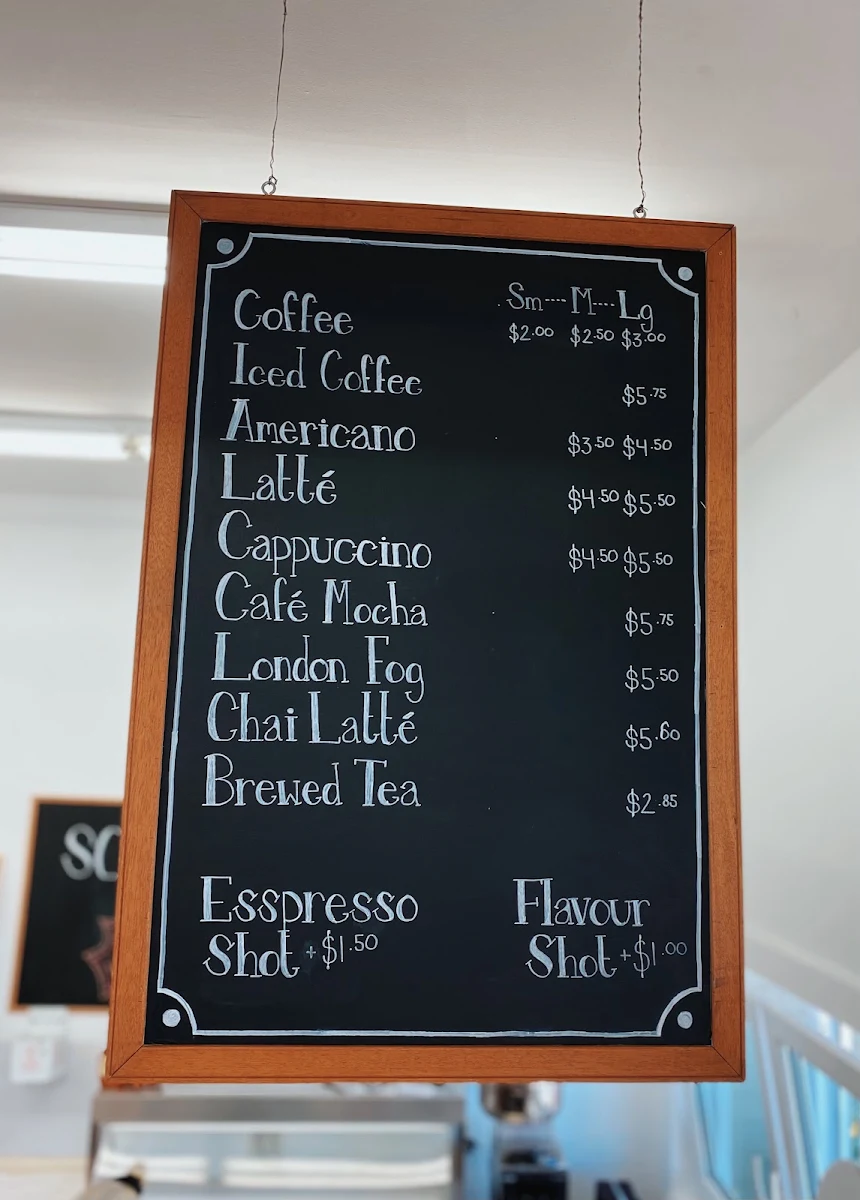 Coffee Sm----M----Lg
$2.00 $2.50 $3.00
Iced Coffee $5.75
Americano $3.50 $4.50
Latté $4.50 $5.50
Cappuccino $4.50 $5.50
Café Mocha $5.75
London Fog $5.50
Chai Latté $5.60
Brewed Tea $2.85
Esspresso Flavour
Shot +$1.50 Shot +$1.00